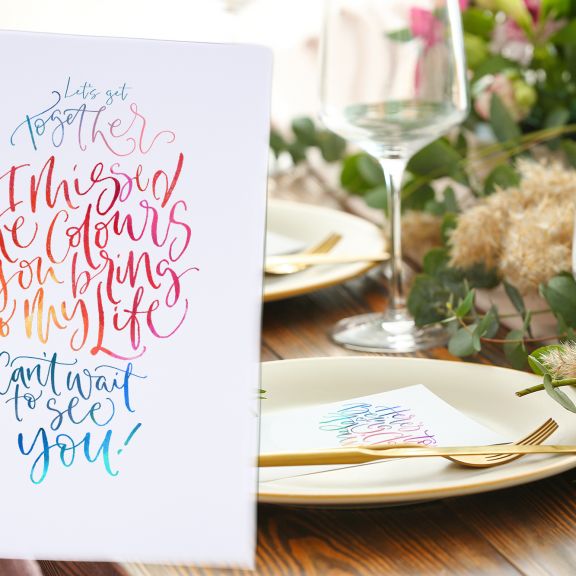 Let's get
Together
I missed
the Colours
you bring
to my Life
Can't wait
to see
you!